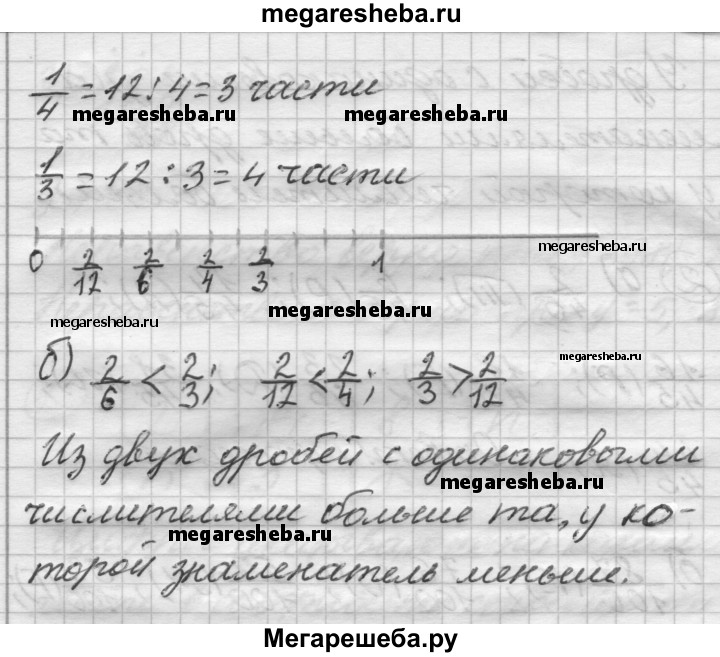 megaresheba.ru
1/4 = 12 : 4 = 3 части
megaresheba.ru megaresheba.ru
1/3 = 12 : 3 = 4 части
megaresheba.ru
0 2/12 2/6 2/4 2/3 1
megaresheba.ru
megaresheba.ru
б) 2/6 < 2/3; 2/12 < 2/4; 2/3 > 2/12
megaresheba.ru
Из двух дробей с одинаковыми
megaresheba.ru
числителями больше та, у ко-
megaresheba.ru
торой знаменатель меньше.
Мегарешеба.ру